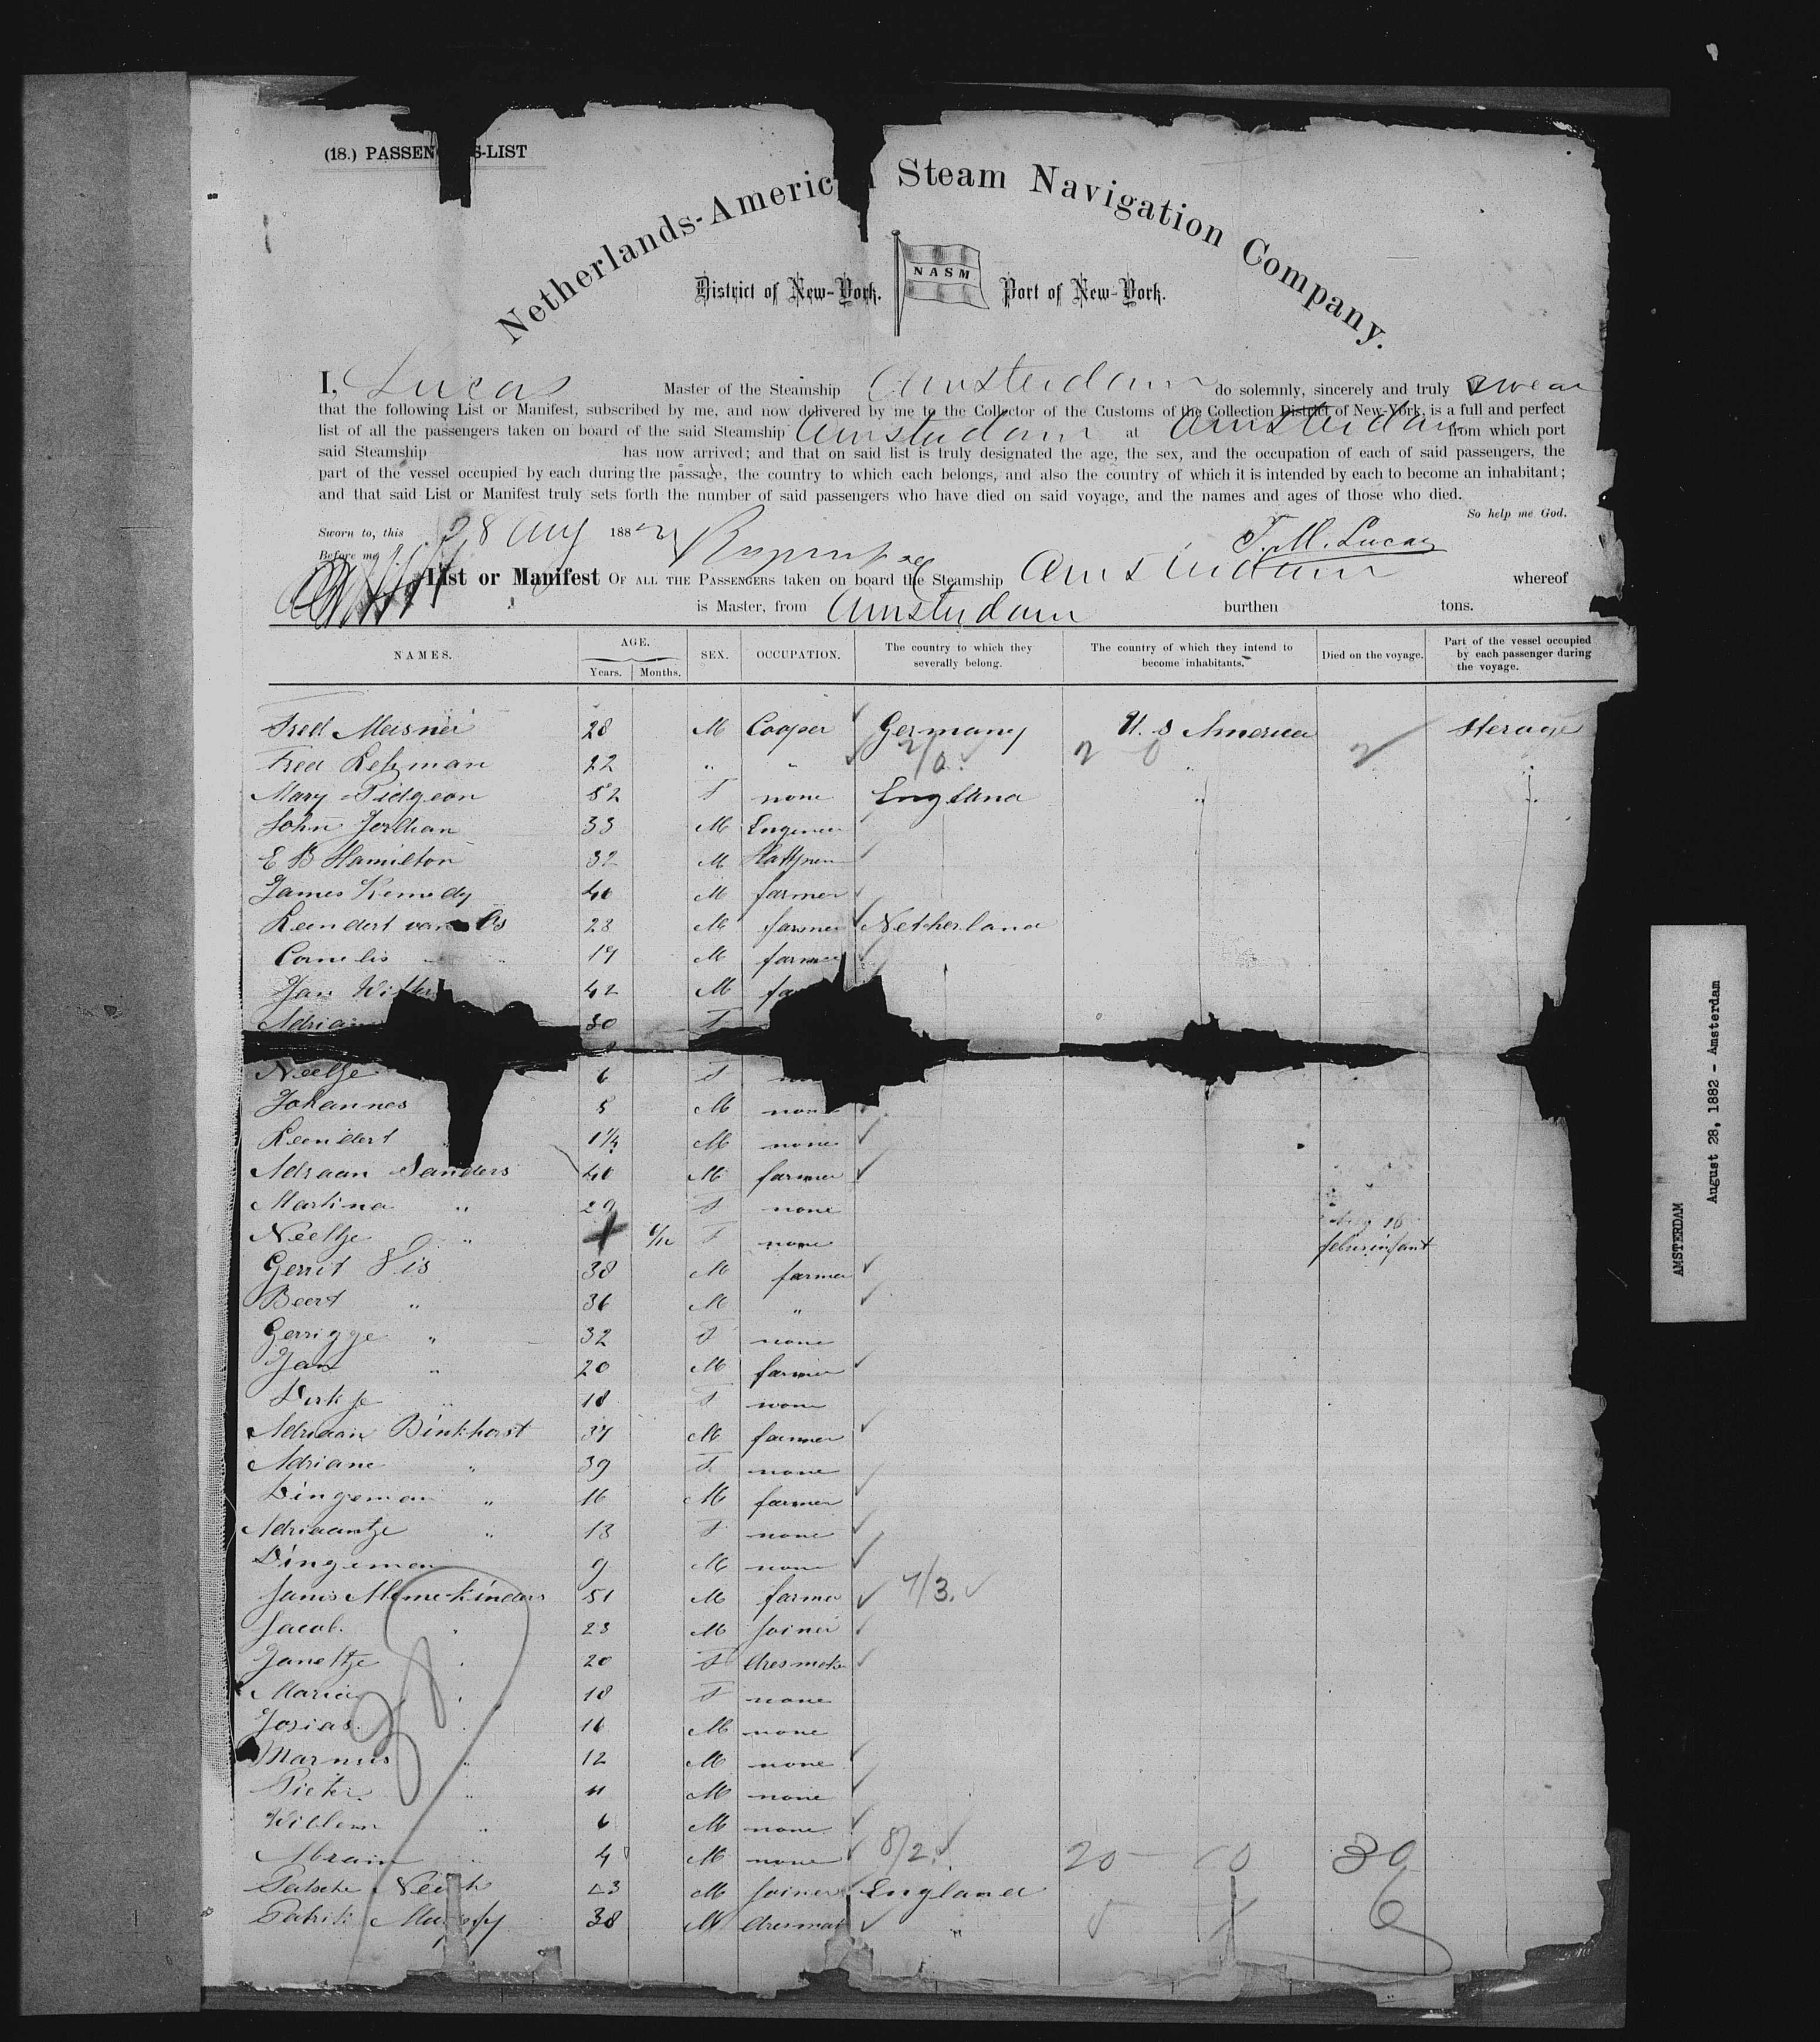 (18.) PASSEN S-LIST
Netherlands-Americ n Steam Navigation Company.
District of New-York. NASM Port of New-York.
I, Lucas Master of the Steamship Amsterdam do solemnly, sincerely and truly swear
that the following List or Manifest, subscribed by me, and now delivered by me to the Collector of the Customs of the Collection District of New-York, is a full and perfect
list of all the passengers taken on board of the said Steamship Amsterdam at Amsterdam from which port
said Steamship has now arrived; and that on said list is truly designated the age, the sex, and the occupation of each of said passengers, the
part of the vessel occupied by each during the passage, the country to which each belongs, and also the country of which it is intended by each to become an inhabitant;
and that said List or Manifest truly sets forth the number of said passengers who have died on said voyage, and the names and ages of those who died.
So help me God.
Sworn to, this 28 Aug 1882
Before me
T. M. Lucas
List or Manifest OF ALL THE PASSENGERS taken on board the Steamship Amsterdam whereof
is Master, from Amsterdam burthen tons.
NAMES. AGE. Years. Months. SEX. OCCUPATION. The country to which they severally belong. The country of which they intend to become inhabitants. Died on the voyage. Part of the vessel occupied by each passenger during the voyage.
Fred Meisner 28 M Cooper Germany U.S America Sterage
Fred Lehman 22 " " 2/0 2 0 2 "
Mary Pidgeon 52 F none England " "
John Jordhan 33 M Engeneer
E B Hamilton 32 M
James Kemedy 40 M farmer
Leendert van Os 28 M farmer Netherland
Cornelis " 19 M farmer
Jan Witte 42 M fa
Adrian 30 F
Neeltje 6 F no
Johannes 5 M none
Leendert 1¼ M none
Adriaan Sanders 40 M farmer
Martina " 29 F none
Neeltje " 6/12 F none febris infant
Gerrit Vis 38 M farmer
Beert " 36 M "
Gerrigge " 32 F none
Jan " 20 M farmer
Dirkje " 18 F none
Adriaan Binkhorst 37 M farmer
Adriane " 39 F none
Dingeman " 16 M farmer
Adriaantje " 13 F none
Dingeman 9 M none
Janis Mimekinders 51 M farmer 7/3.
Jacob. " 23 M Joiner
Janeltje " 20 F dresmaker
Maria " 18 F none
Josias " 16 M none
Marnus " 12 M none
Pieter " 11 M none
Willem " 6 M none
Abram " 4 M none 8/2. 20 10 30
23 M Joiner England
Patrik Murphy 38 M dresmak " 5 1 6
38
AMSTERDAM
August 28, 1882 - Amsterdam